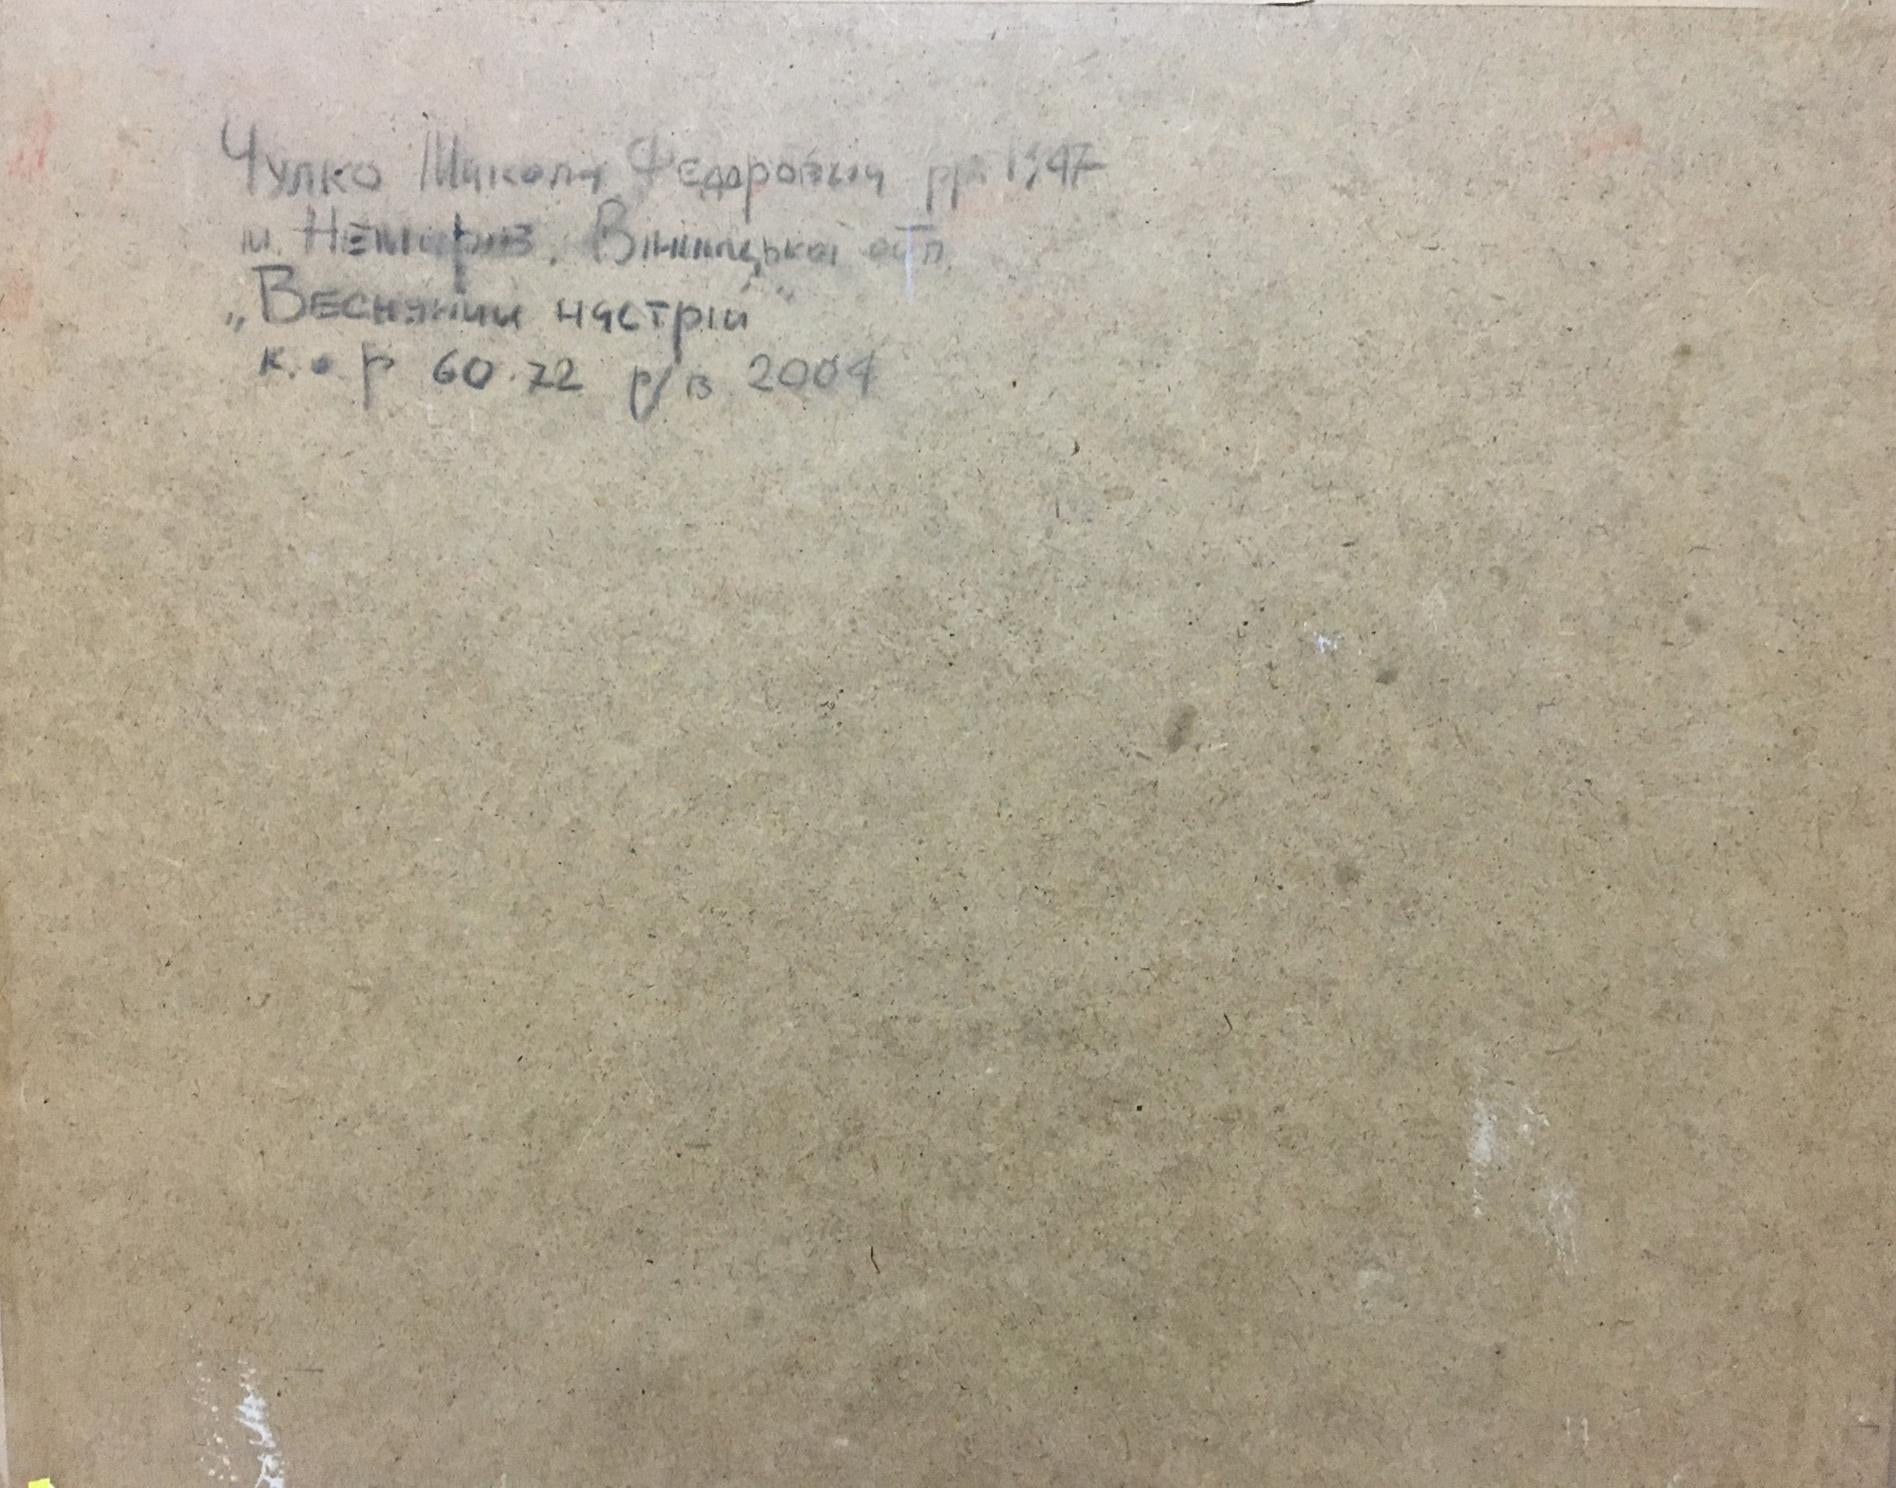 Чулко Микола Федорович р.р. 1947
м. Немирів. Вінницької обл.
„Весняний настрій"
к.о р 60.72 р/в 2004